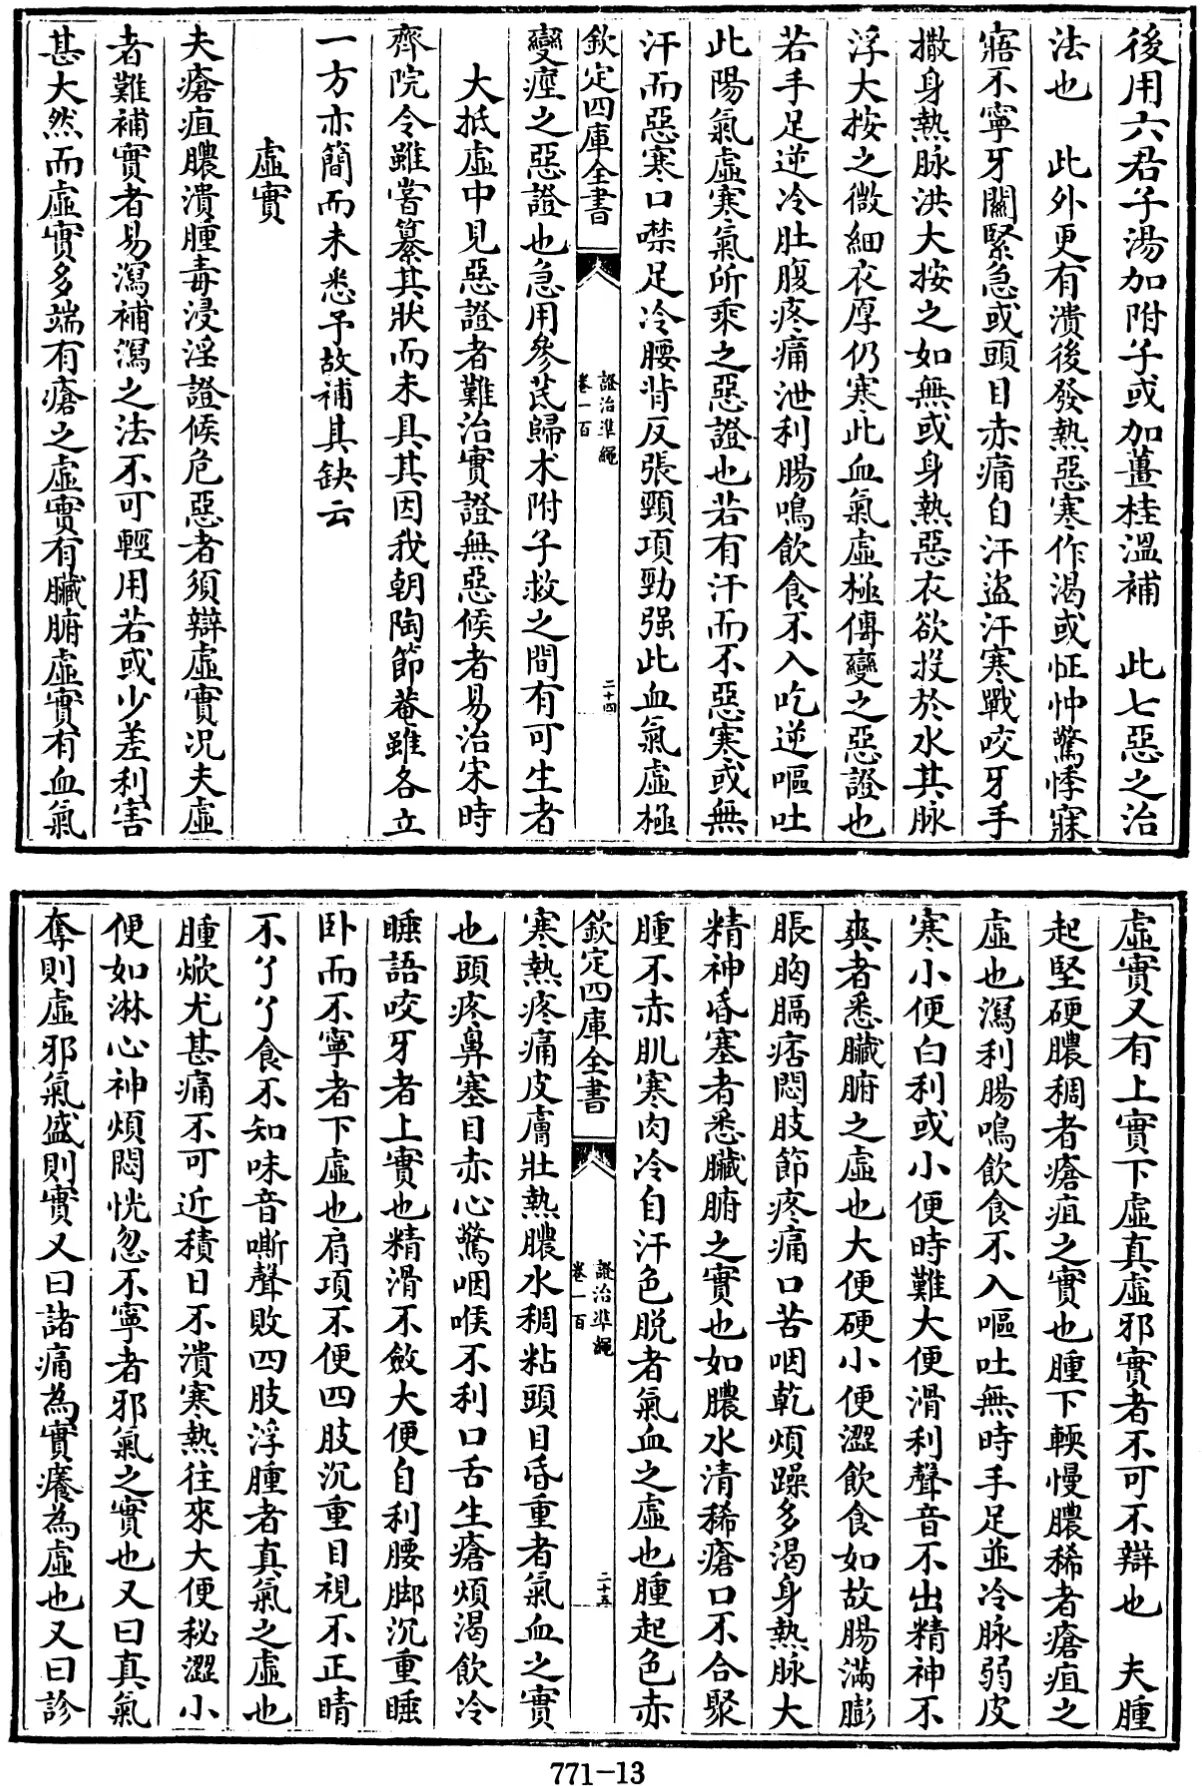 後用六君子湯加附子或加薑桂溫補　此七惡之治
法也　此外更有潰後發熱惡寒作渴或怔忡驚悸寐
寤不寧牙關緊急或頭目赤痛自汗盜汗寒戰咬牙手
撒身熱脉洪大按之如無或身熱惡衣欲投於水其脉
浮大按之微細衣厚仍寒此血氣虛極傳變之惡證也
若手足逆冷肚腹疼痛泄利腸鳴飲食不入吃逆嘔吐
此陽氣虛寒氣所乘之惡證也若有汗而不惡寒或無
汗而惡寒口噤足冷腰背反張頸項勁强此血氣虛極
欽定四庫全書
證治準繩
卷一百
二十四
變瘂之惡證也急用參芪歸术附子救之間有可生者
大抵虛中見惡證者難治實證無惡候者易治宋時
齊院令雖嘗纂其狀而未具其因我朝陶節菴雖各立
一方亦簡而未悉予故補其缺云
虛實
夫瘡疽膿潰腫毒浸淫證候危惡者須辯虛實况夫虛
者難補實者易瀉補瀉之法不可輕用若或少差利害
甚大然而虛實多端有瘡之虛實有臟腑虛實有血氣
虛實又有上實下虛真虛邪實者不可不辯也　夫腫
起堅硬膿稠者瘡疽之實也腫下輭慢膿稀者瘡疽之
虛也瀉利腸鳴飲食不入嘔吐無時手足並冷脉弱皮
寒小便白利或小便時難大便滑利聲音不出精神不
爽者悉臟腑之虛也大便硬小便澀飲食如故腸滿膨
脹胸膈痞悶肢節疼痛口苦咽乾煩躁多渴身熱脉大
精神昏塞者悉臟腑之實也如膿水清稀瘡口不合聚
腫不赤肌寒肉冷自汗色脱者氣血之虛也腫起色赤
欽定四庫全書
證治準繩
卷一百
二十五
寒熱疼痛皮膚壯熱膿水稠粘頭目昏重者氣血之實
也頭疼鼻塞目赤心驚咽喉不利口舌生瘡煩渴飲冷
睡語咬牙者上實也精滑不斂大便自利腰脚沉重睡
卧而不寧者下虛也肩項不便四肢沉重目視不正睛
不了了食不知味音嘶聲敗四肢浮腫者真氣之虛也
腫焮尤甚痛不可近積日不潰寒熱往來大便秘澀小
便如淋心神煩悶恍忽不寧者邪氣之實也又曰真氣
奪則虛邪氣盛則實又曰諸痛為實癢為虛也又曰診
771-13